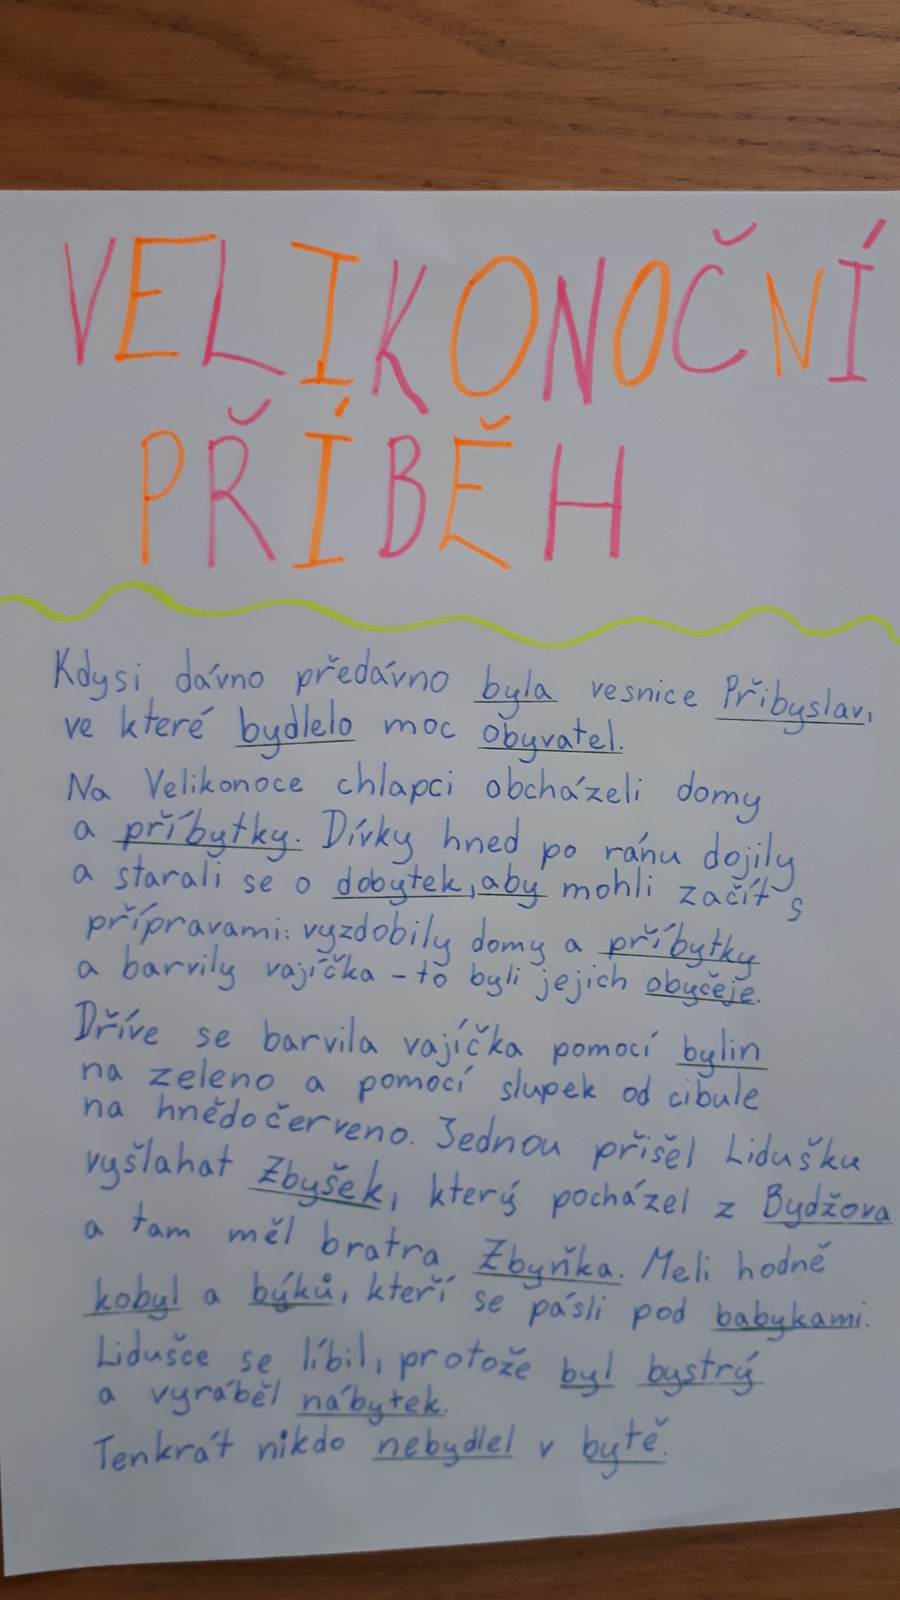 VELIKONOČNÍ
PŘÍBĚH
Kdysi dávno předávno byla vesnice Přibyslav,
ve které bydlelo moc obyvatel.
Na Velikonoce chlapci obcházeli domy
a příbytky. Dívky hned po ránu dojily
a starali se o dobytek, aby mohli začít s
přípravami: vyzdobily domy a příbytky
a barvily vajíčka - to byli jejich obyčeje.
Dříve se barvila vajíčka pomocí bylin
na zeleno a pomocí slupek od cibule
na hnědočerveno. Jednou přišel Lidušku
vyšlahat Zbyšek, který pocházel z Bydžova
a tam měl bratra Zbyňka. Meli hodně
kobyl a býků, kteří se pásli pod babykami.
Lidušce se líbil, protože byl bystrý
a vyráběl nábytek.
Tenkrát nikdo nebydlel v bytě.